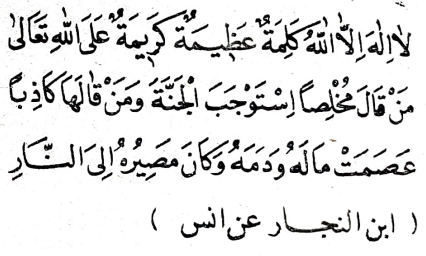 لَااِلٰهَ اِلَّا اللّٰهُ كَلِمَةٌ عَظِيمَةٌ كَرِيمَةٌ عَلَى اللّٰهِ تَعَالٰى
مَنْ قَالَ مُخْلِصاً اِسْتَوْجَبَ الْجَنَّةَ وَمَنْ قَالَهَا كَاذِباً
عَصَمَتْ مَالَهُ وَدَمَهُ وَكَانَ مَصِيرُهُ اِلَى النَّارِ
( ابن النجار عن انس )